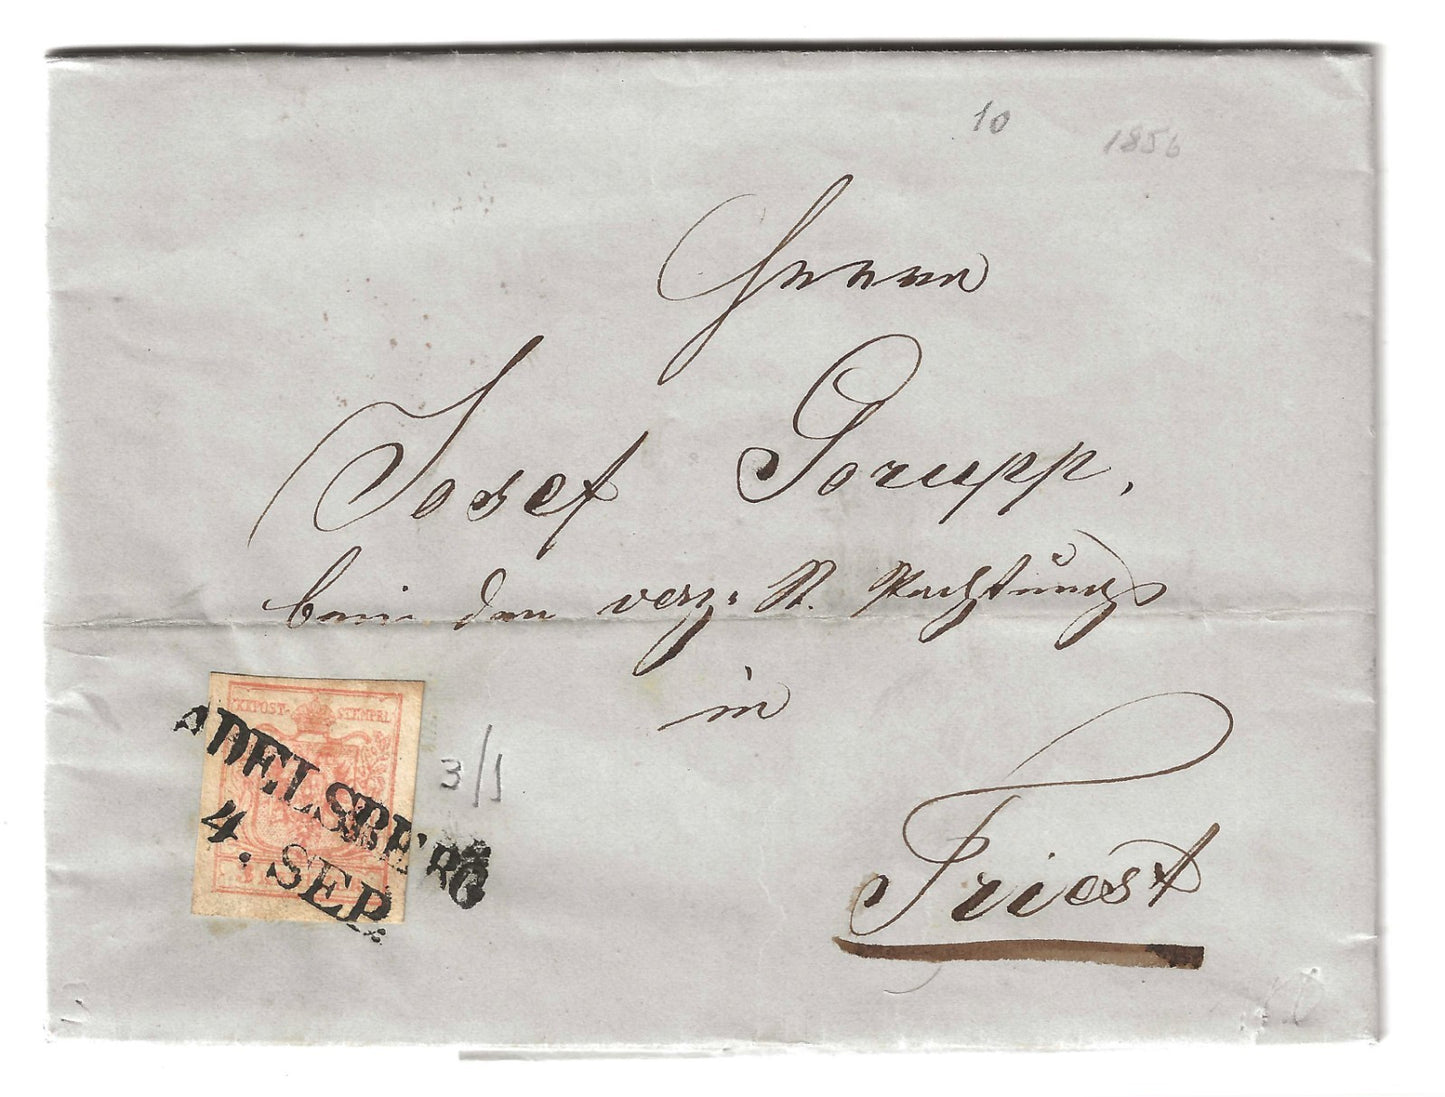 10
1856
Herrn
Josef Gorupp,
beim den verz: St. Pachtungs
in
Triest
KKPOST-STEMPEL
ADELSBERG
4. SEP.
3/1